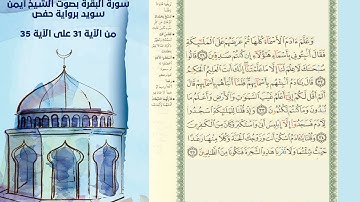 سورة البقرة بصوت الشيخ ايمن
سويد برواية حفص
من الآية 31 على الآية 35
وَعَلَّمَ ءَادَمَ ٱلْأَسْمَآءَ كُلَّهَا ثُمَّ عَرَضَهُمْ عَلَى ٱلْمَلَٰٓئِكَةِ
فَقَالَ أَنۢبِـُٔونِى بِأَسْمَآءِ هَٰٓؤُلَآءِ إِن كُنتُمْ صَٰدِقِينَ ٣١ قَالُوا۟
سُبْحَٰنَكَ لَا عِلْمَ لَنَآ إِلَّا مَا عَلَّمْتَنَآ إِنَّكَ أَنتَ ٱلْعَلِيمُ ٱلْحَكِيمُ
٣٢ قَالَ يَٰٓـَٔادَمُ أَنۢبِئْهُم بِأَسْمَآئِهِمْ فَلَمَّآ أَنۢبَأَهُم بِأَسْمَآئِهِمْ
قَالَ أَلَمْ أَقُل لَّكُمْ إِنِّىٓ أَعْلَمُ غَيْبَ ٱلسَّمَٰوَٰتِ وَٱلْأَرْضِ وَأَعْلَمُ مَا
تُبْدُونَ وَمَا كُنتُمْ تَكْتُمُونَ ٣٣ وَإِذْ قُلْنَا لِلْمَلَٰٓئِكَةِ ٱسْجُدُوا۟
لِـَٔادَمَ فَسَجَدُوٓا۟ إِلَّآ إِبْلِيسَ أَبَىٰ وَٱسْتَكْبَرَ وَكَانَ مِنَ ٱلْكَٰفِرِينَ
٣٤ وَقُلْنَا يَٰٓـَٔادَمُ ٱسْكُنْ أَنتَ وَزَوْجُكَ ٱلْجَنَّةَ وَكُلَا مِنْهَا رَغَدًا
حَيْثُ شِئْتُمَا وَلَا تَقْرَبَا هَٰذِهِ ٱلشَّجَرَةَ فَتَكُونَا مِنَ ٱلظَّٰلِمِينَ ٣٥